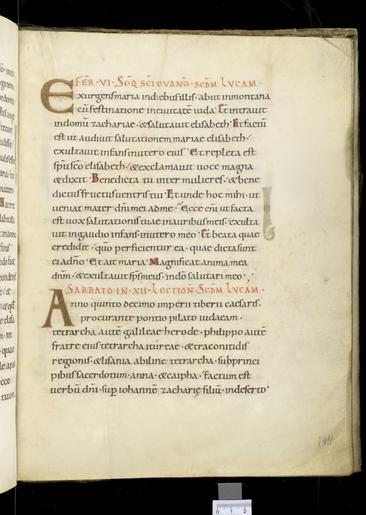 FER · VI · SEQ SCI EVANG · SCDM LVCAM ·
Exurgens maria in diebus illis · abiit in montana
cū festinatione in civitatē iuda · Et intravit
in domum zachariae · & salutavit elisabeth · Et factū
est ut audivit salutationem mariae elisabeth ·
exultavit infans in utero eius · Et repleta est
spū sco elisabeth · & exclamavit voce magna
& dixit · Benedicta tu inter mulieres · & bene
dictus fructus ventris tui · Et unde hoc mihi · ut
veniat mater dni mei ad me · Ecce eni ut facta
est vox salutationis tuae in auribus meis · exulta
vit in gaudio infans in utero meo · Et beata quae
credidit · qm perficientur ea · quae dicta sunt
ei a dño · Et ait maria · Magnificat anima mea
dnm · & exultavit sps meus · in dō salutari meo ·
SABBATO IN · XII · LECTION · SCDM LVCAM ·
Anno quinto decimo imperii tiberii caesaris ·
procurante pontio pilato iudaeam ·
tetrarcha autē galileae herode · philippo autē
fratre eius tetrarcha itureae · & traconitidis
regionis · & lisania abiline tetrarcha · sub princi
pibus sacerdotum · anna · & caipha · factum est
verbū dni · sup iohannē · zachariae filiū · in deserto ·